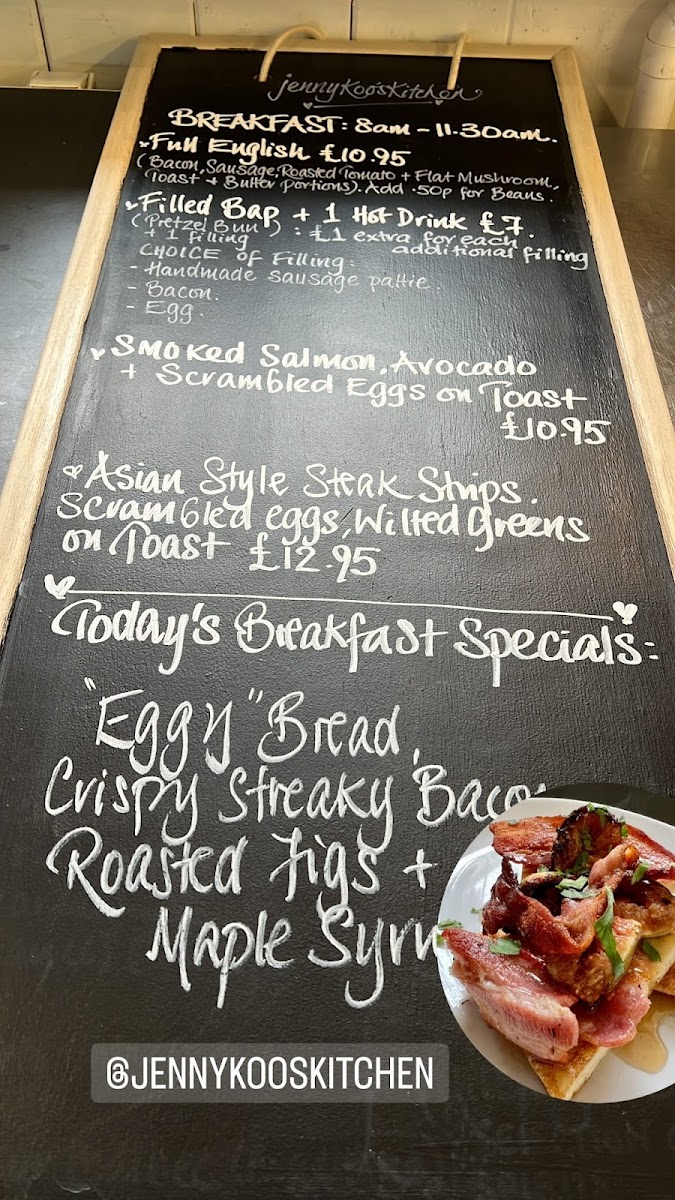 jennykoo'skitchen
BREAKFAST: 8am - 11.30am.
Full English £10.95
(Bacon, Sausage, Roasted Tomato + Flat Mushroom,
Toast + Butter Portions). Add .50p for Beans.
Filled Bap + 1 Hot Drink £7.
(Pretzel Bun) : £1 extra for each
+ 1 filling additional filling
CHOICE of Filling:
- Handmade sausage pattie.
- Bacon.
- Egg.
Smoked Salmon, Avocado
+ Scrambled Eggs on Toast
£10.95
Asian Style Steak Strips.
Scrambled eggs, Wilted Greens
on Toast £12.95
Today's Breakfast Specials:
"Eggy" Bread,
Crispy Streaky Bacon
Roasted Figs +
Maple Syru
@JENNYKOOSKITCHEN